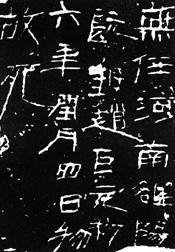 無任河南雒陽
髡鉗趙巨元初
六年閏月四日物
故死